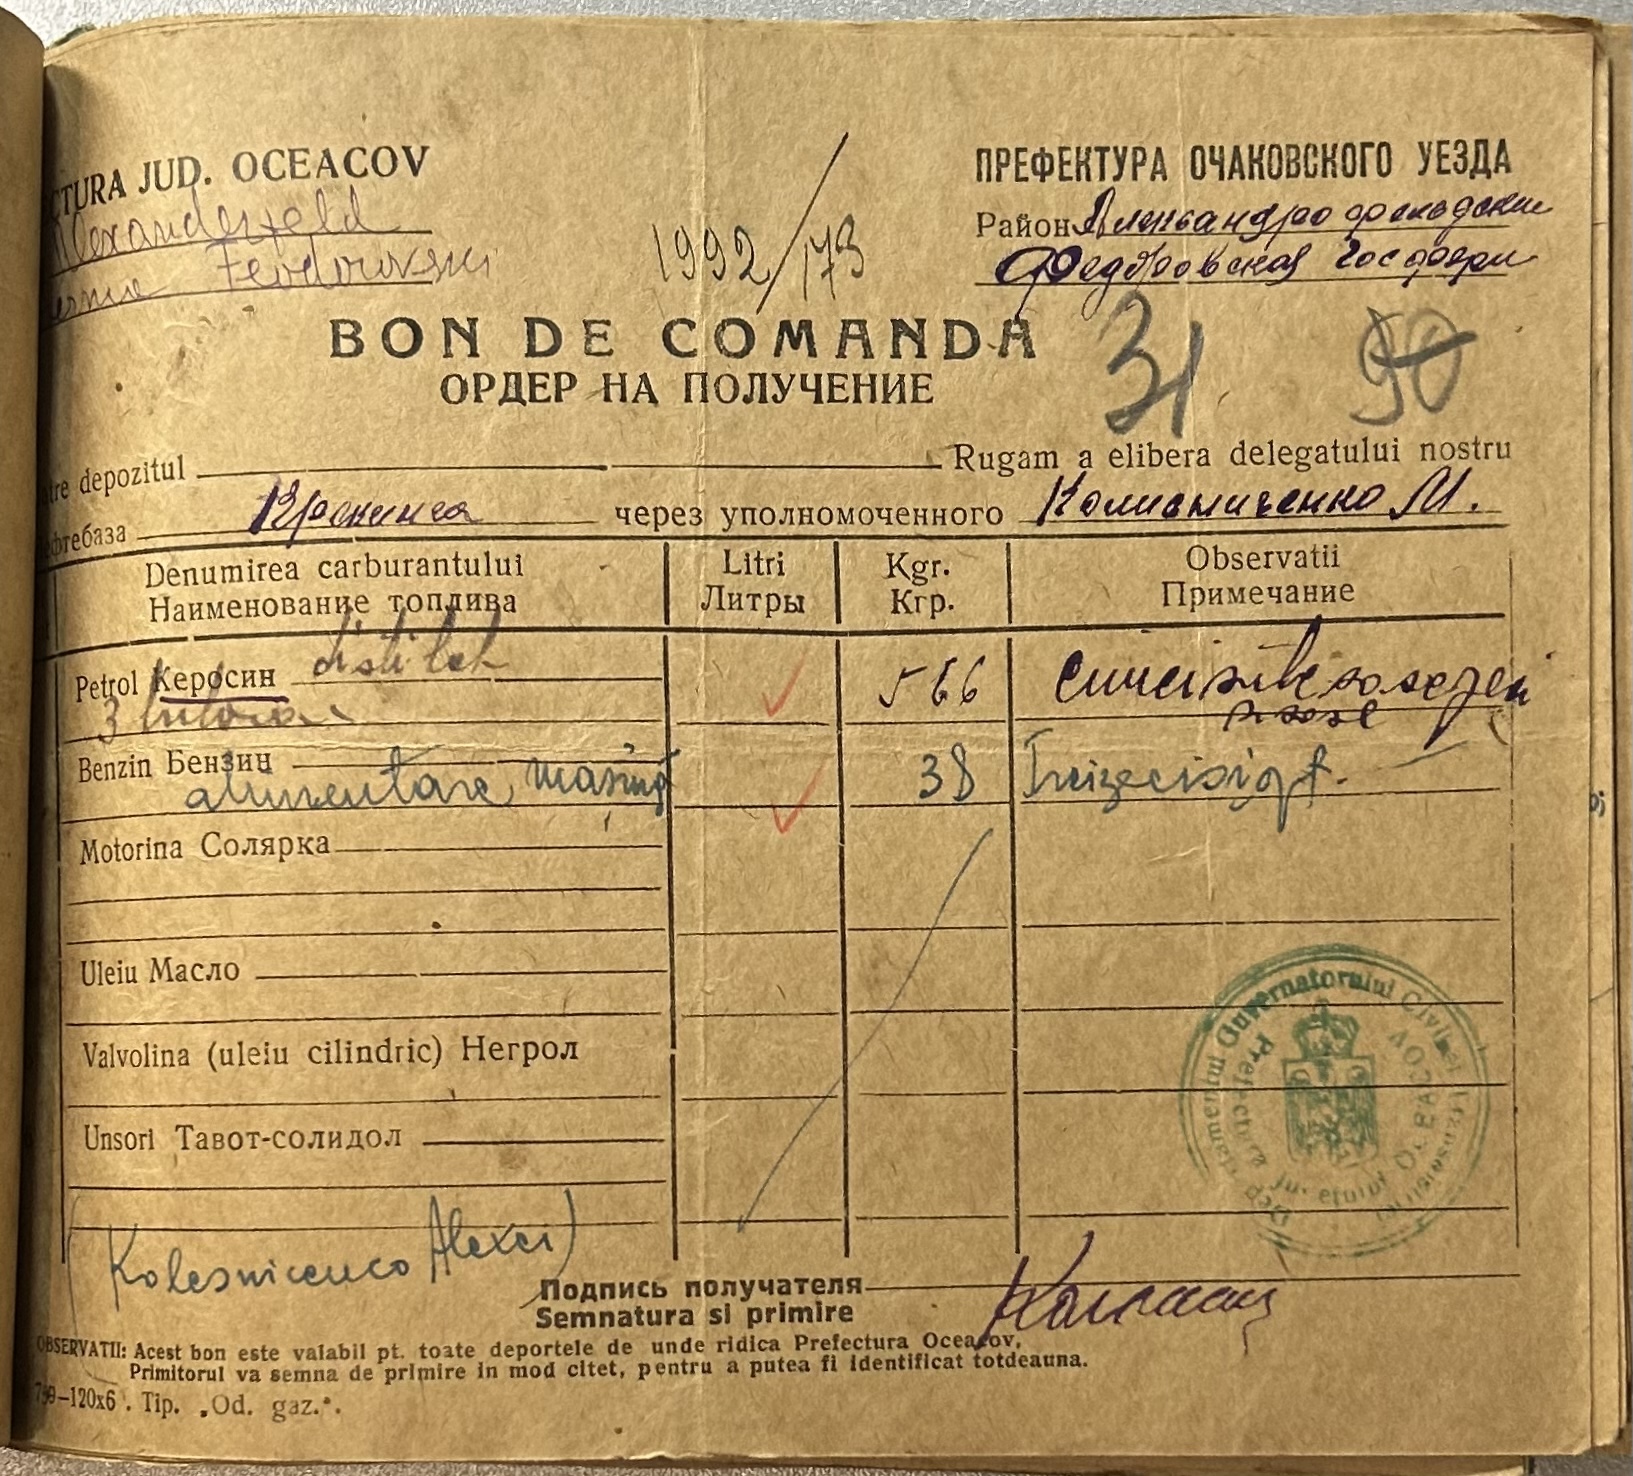 CTURA JUD. OCEACOV
Alexanderfeld
Feodorovski
1992/173
ПРЕФЕКТУРА ОЧАКОВСКОГО УЕЗДА
Район Александрофельдский
Федоровская Госферм
BON DE COMANDA
ОРДЕР НА ПОЛУЧЕНИЕ
31 90
tre depozitul Rugam a elibera delegatului nostru
фтебаза через уполномоченного Колисниченко М.
Denumirea carburantului Litri Kgr. Observatii
Наименование топлива Литры Кгр. Примечание
Petrol Керосин distilat 566 cincisute sasezeci
3 sase
Benzin Бензин 38 Treizecisiopt.
alimentare mașină
Motorina Солярка
Uleiu Масло
Valvolina (uleiu cilindric) Негрол
Unsori Тавот-солидол
Guvernatorului Civil
Prefectura Județului
(Kolesnicenco Alexei)
Подпись получателя
Semnatura si primire
OBSERVATII: Acest bon este valabil pt. toate deportele de unde ridica Prefectura Oceacov,
Primitorul va semna de primire in mod citet, pentru a putea fi identificat totdeauna.
799—120x6. Tip. „Od. gaz.“.